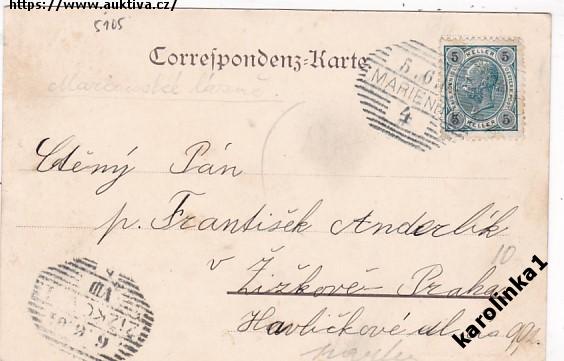 https://www.auktiva.cz/
5105
Correspondenz-Karte
Marienské lázně
5 HELLER 5
5 HELLER 5
5. 6.
MARIENB
4
Ctěný Pán
p. František Anderlik
v Žižkově Praha
10
Havličkově ul. na
ŽIŽKOV
karolinka1